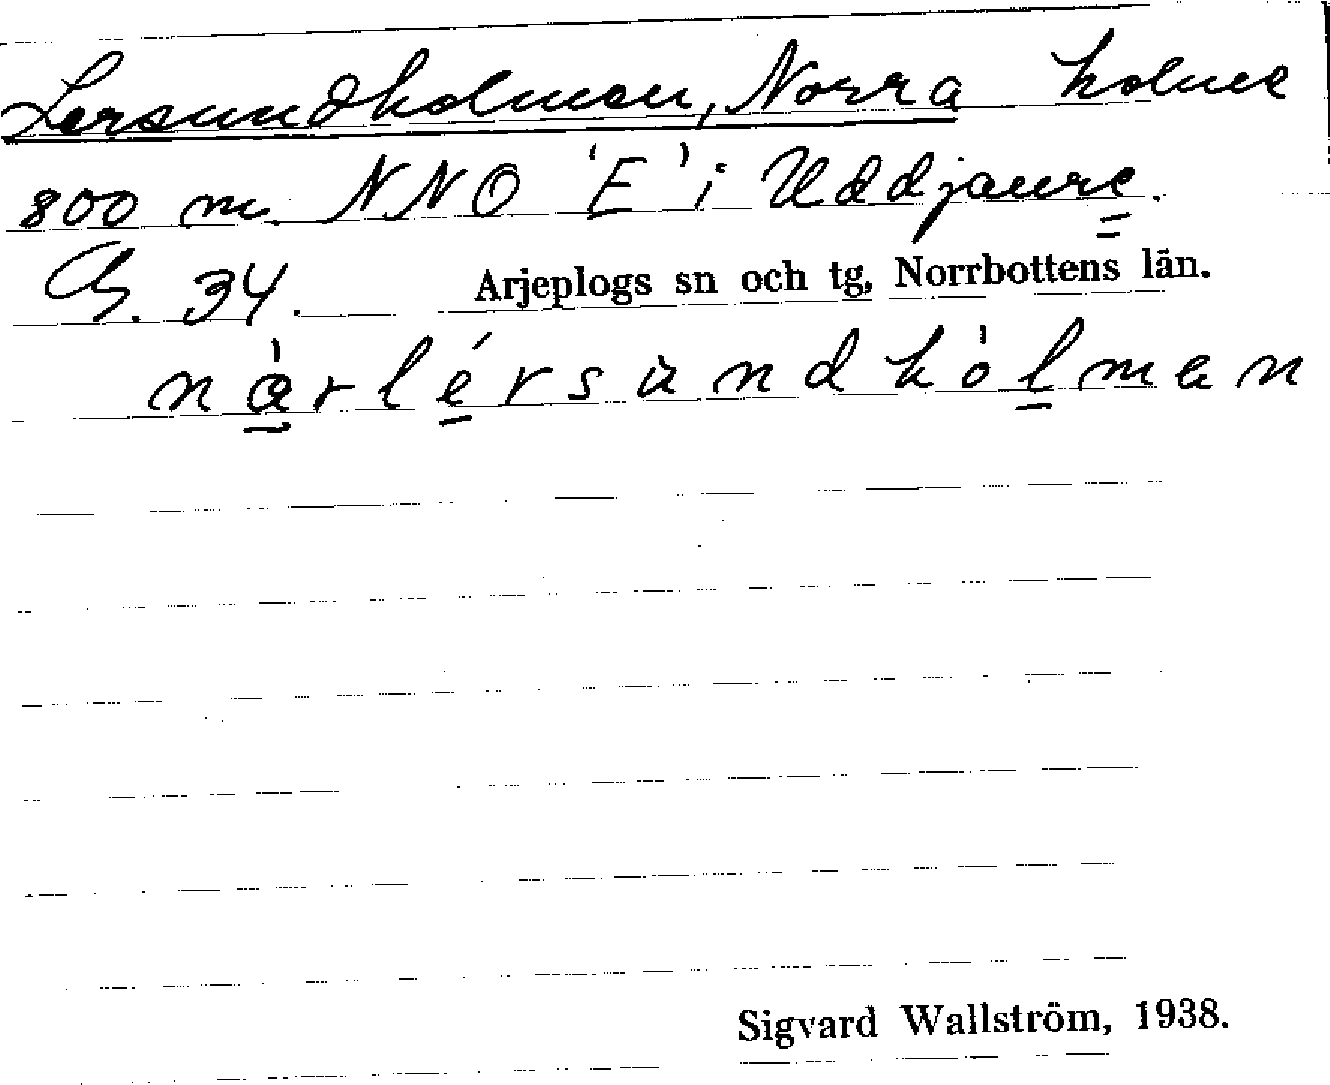 Lersundholmen, Norra holme
800 m. NNO 'E' i Uddjaure.
G. 34. Arjeplogs sn och tg, Norrbottens län.
nàrlérsùndhòlmen
Sigvard Wallström, 1938.